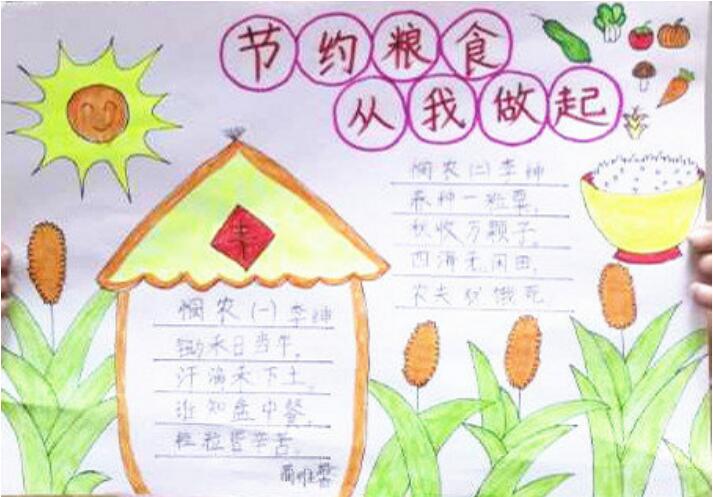 节约粮食
从我做起
悯农(二)李绅
春种一粒粟,
秋收万颗子。
四海无闲田,
农夫犹饿死
丰
悯农(一)李绅
锄禾日当午,
汗滴禾下土。
谁知盘中餐,
粒粒皆辛苦。